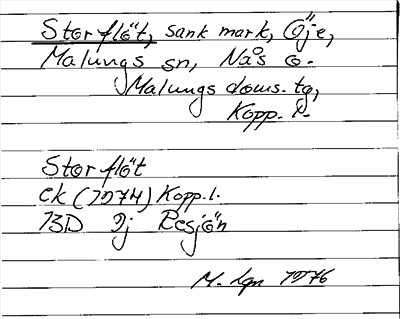 Storflöt, sank mark, Öje,
Malungs sn, Nås o.
Malungs doms. tg,
Kopp. l.
Storflöt
ek (1974) Kopp.l.
13D 9j Resjön
M. Lgn 1976